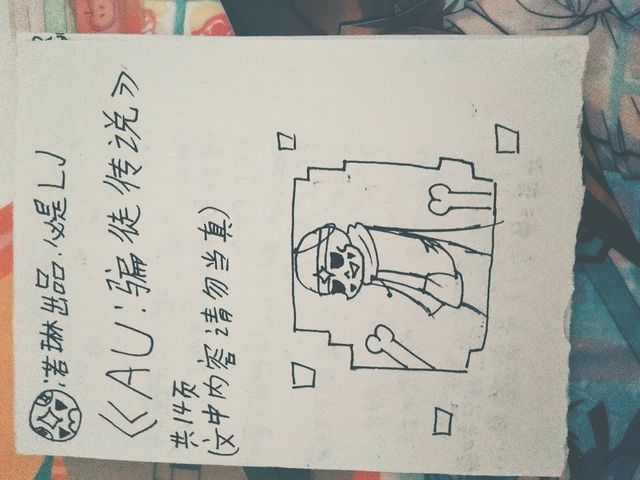 :诺琳出品.必是LJ
《AU:骗徒传说》
共14页
(文中内容请勿当真)